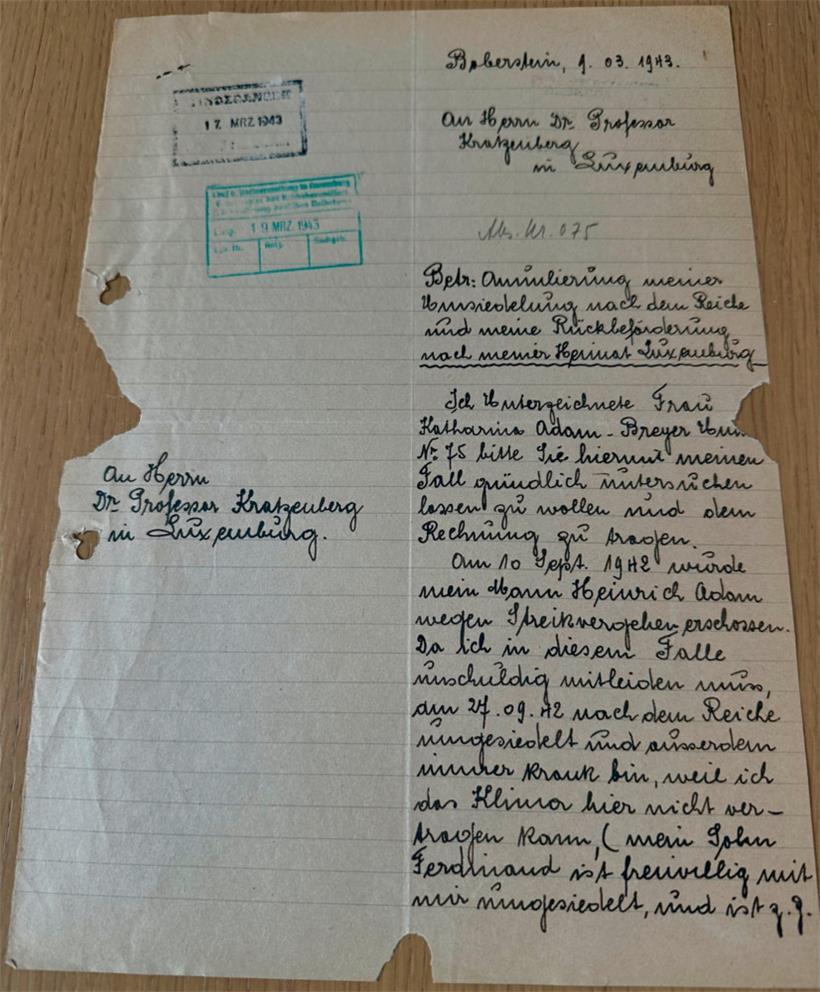 17 MRZ 1943
19 MRZ. 1943
An Herrn
Dr. Professor Kratzenberg
in Luxemburg.
Boberstein, 9. 03. 1943.
An Herrn Dr. Professor
Kratzenberg
in Luxemburg
Nr. 075
Betr: Annulierung meiner
Umsiedelung nach dem Reiche
und meine Rückbeförderung
nach meiner Heimat Luxemburg
Ich Unterzeichnete Frau
Katharina Adam-Breyer
Nr. 75 bitte Sie hiermit meinen
Fall gründlich untersuchen
lassen zu wollen und dem
Rechnung zu tragen.
Am 10 Sept. 1942 wurde
mein Mann Heinrich Adam
wegen Streikvergehen erschossen.
Da ich in diesem Falle
unschuldig mitleiden muss,
am 27.09.42 nach dem Reiche
umgesiedelt und ausserdem
immer krank bin, weil ich
das Klima hier nicht ver-
tragen kann, (mein Sohn
Ferdinand ist freiwillig mit
mir umgesiedelt, und ist z.Z.